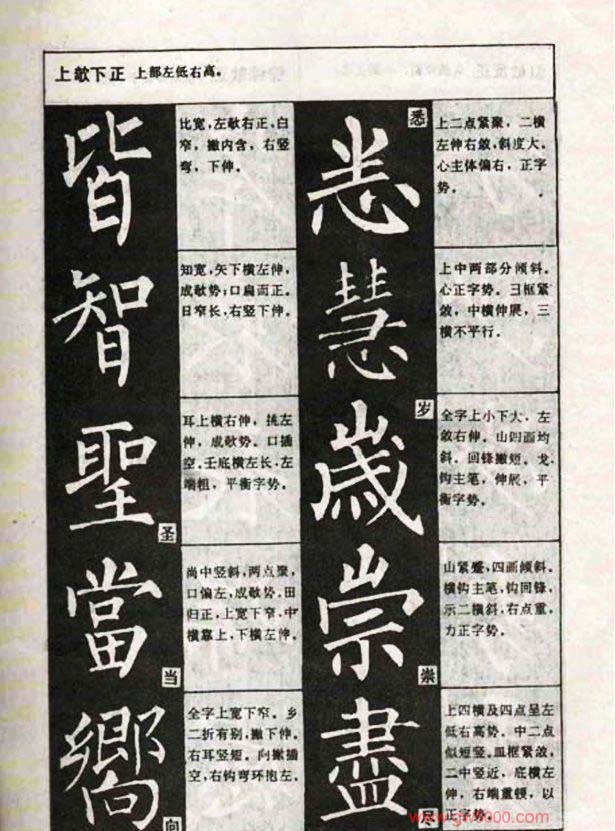 上欹下正 上部左低右高。
皆
比宽,左欹右正,白
窄,撇内含,右竖
弯,下伸。
悉
上二点紧聚,二横
左伸右敛,斜度大。
心主体偏右,正字
势。
智
知宽,矢下横左伸,
成欹势;口扁而正。
日窄长,右竖下伸。
慧
上中两部分倾斜。
心正字势。彐框紧
敛,中横伸展,三
横不平行。
聖
圣
耳上横右伸,挑左
伸,成欹势。口插
空。壬底横左长,左
端粗,平衡字势。
歲
岁
全字上小下大,左
敛右伸。山四画均
斜。回锋撇短。戈
钩主笔,伸展,平
衡字势。
當
当
尚中竖斜,两点聚,
口偏左,成欹势,田
归正,上宽下窄,中
横靠上,下横左伸。
崇
崇
山紧蹙,四画倾斜。
横钩主笔,钩回锋,
示二横斜,右点重,
力正字势。
嚮
向
全字上宽下窄。乡
二折有别,撇下伸。
右耳竖短。向撇插
空,右钩弯环抱左。
盡
尽
上四横及四点呈左
低右高势。中二点
似短竖。皿框紧敛,
二中竖近,底横左
伸,右端重顿,以
正字势。